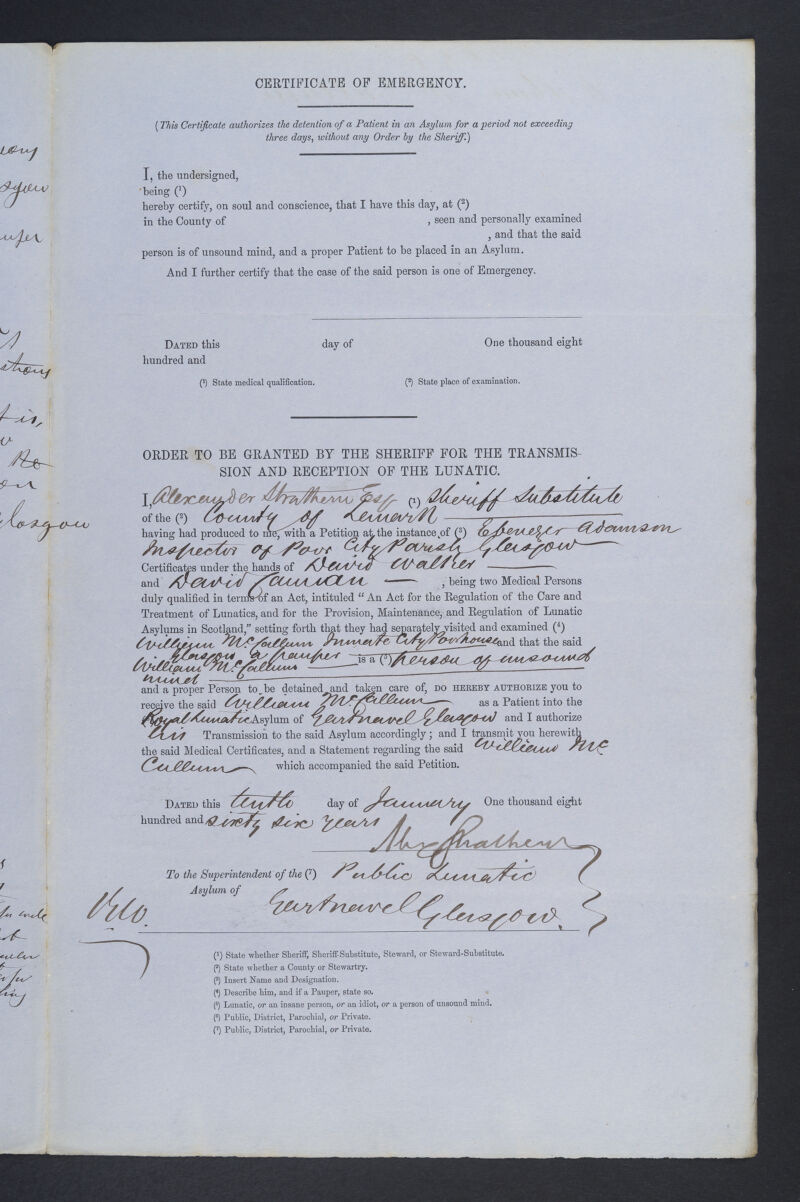 CERTIFICATE OF EMERGENCY.
(This Certificate authorizes the detention of a Patient in an Asylum for a period not exceeding
three days, without any Order by the Sheriff.)
I, the undersigned,
being (¹)
hereby certify, on soul and conscience, that I have this day, at (²)
in the County of , seen and personally examined
, and that the said
person is of unsound mind, and a proper Patient to be placed in an Asylum.
And I further certify that the case of the said person is one of Emergency.
DATED this day of One thousand eight
hundred and
(¹) State medical qualification. (²) State place of examination.
ORDER TO BE GRANTED BY THE SHERIFF FOR THE TRANSMIS-
SION AND RECEPTION OF THE LUNATIC.
I, Alexander Strathern Esq (¹) Sheriff Substitute
of the (²) County of Lanark
having had produced to me, with a Petition at the instance of (³) Ebenezer Adamson
Inspector of Poor City Parish Glasgow
Certificates under the hands of David Walker
and David , being two Medical Persons
duly qualified in terms of an Act, intituled "An Act for the Regulation of the Care and
Treatment of Lunatics, and for the Provision, Maintenance, and Regulation of Lunatic
Asylums in Scotland," setting forth that they had separately visited and examined (⁴)
William McCallum Inmate City Poorhouse and that the said
Glasgow a pauper
William McCallum is a (⁵) person of unsound
mind
and a proper Person to be detained and taken care of, DO HEREBY AUTHORIZE you to
receive the said William McCallum as a Patient into the
Royal Lunatic Asylum of Gartnavel Glasgow and I authorize
his Transmission to the said Asylum accordingly; and I transmit you herewith
the said Medical Certificates, and a Statement regarding the said William Mc
Callum which accompanied the said Petition.
DATED this tenth day of January One thousand eight
hundred and sixty six years
Alex Strathern
To the Superintendent of the (⁷) Public Lunatic
Asylum of
Gartnavel Glasgow.
(¹) State whether Sheriff, Sheriff-Substitute, Steward, or Steward-Substitute.
(²) State whether a County or Stewartry.
(³) Insert Name and Designation.
(⁴) Describe him, and if a Pauper, state so.
(⁵) Lunatic, or an insane person, or an idiot, or a person of unsound mind.
(⁶) Public, District, Parochial, or Private.
(⁷) Public, District, Parochial, or Private.